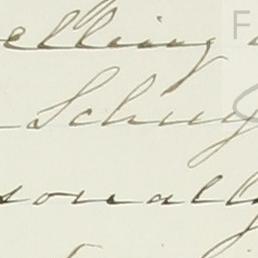 elling
Schuy
sonally